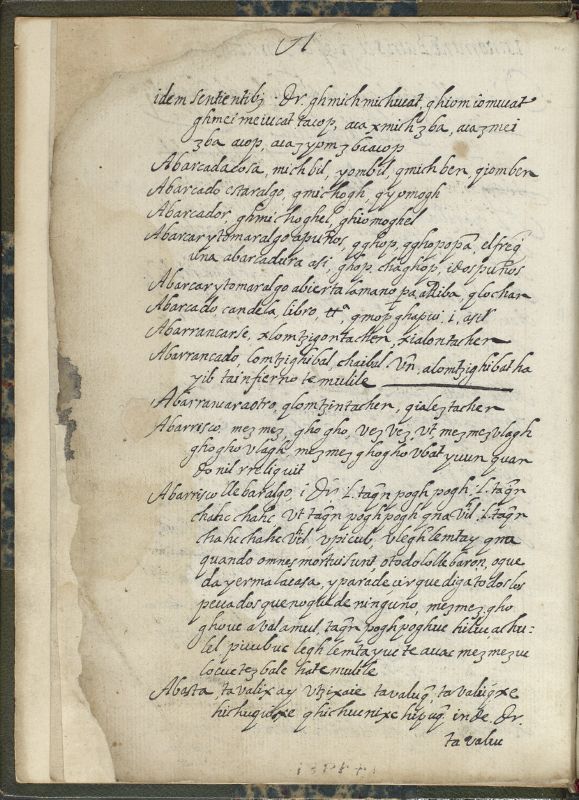 A
idem sentientibȝ. Dr. ghmichmichucat, ghiomiomucat
ghmeimeiucat tacop, auaxmichȝba, auaȝmei
ȝba auop, auaȝyomȝbaauop
Abarcada cosa, michbil, yombil, qmichben, qiomben
Abarcado estar algo, qmichogh, qyomogh
Abarcador, ghmichoghel, ghiomoghel
Abarcar y tomar algo a puños, qghop, qghopopa, el freq
una abarcadura asi, ghop, chaghop, i dos puños
Abarcar y tomar algo abierta la mano pa arriba, qlochan
Abarcado candela, libro, tta, qmop ghapiui .i. asir
Abarrancarse, xlomtzigontachen, xialontachen
Abarrancado, lomtzighibal, chaibul. Vn, alomtzighibal ha
yib ta infierno temulile
Abarrancar a otro, qlomtzintachen, qialeȝtachen
Abarrisco, meȝmeȝ, ghogho, veȝveȝ, vt, meȝmeȝvlagh
ghoghovlagh, meȝmeȝ ghoghovbat yuun quan
do nil reliquit
Abarrisco llebar algo, i Dr. l. taqn poghpogh. l. taqn
chahcchahc vt taqn poghpogh qna vtil. l. taqn
chahcchahc vtil, vpicub, vleghlemtay qna
quando omnes mortui sunt, o todo lo lle baron, o que
da yerma la casa, y para decir que diga todos los
peccados que no qulde ninguno, meȝmeȝ gho
ghoue aualamul, taqn poghpoghue hiliuachu:
lel piuubuc leghlemtayuc te auac meȝmeȝuc
locucteȝbale hatemulile
Abasta tavalixay vtzixaic tavaluq, tavaluqxe
hichuqidxe qhichuunixe hipuq. inde. Dr.
tavaluu